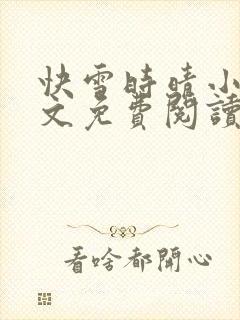 快雪時晴小
文免費閱讀
看啥都開心